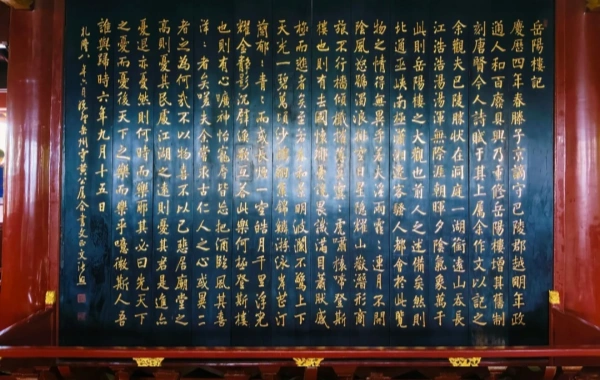 岳陽樓記
慶曆四年春滕子京謫守巴陵郡越明年政
通人和百廢具興乃重修岳陽樓增其舊制
刻唐賢今人詩賦于其上屬余作文以記之
余觀夫巴陵勝狀在洞庭一湖銜遠山吞長
江浩浩湯湯橫無際涯朝暉夕陰氣象萬千
此則岳陽樓之大觀也前人之述備矣然則
北通巫峽南極瀟湘遷客騷人多會於此覽
物之情得無異乎若夫霪雨霏霏連月不開
陰風怒號濁浪排空日星隱耀山嶽潛形商
旅不行檣傾楫摧薄暮冥冥虎嘯猿啼登斯
樓也則有去國懷鄉憂讒畏譏滿目蕭然感
極而悲者矣至若春和景明波瀾不驚上下
天光一碧萬頃沙鷗翔集錦鱗游泳岸芷汀
蘭郁々青々而或長煙一空皓月千里浮光
耀金靜影沉璧漁歌互答此樂何極登斯樓
也則有心曠神怡寵辱皆忘把酒臨風其喜
洋々者矣嗟夫余嘗求古仁人之心或異二
者之為何哉不以物喜不以己悲居廟堂之
高則憂其民處江湖之遠則憂其君是進亦
憂退亦憂然則何時而樂耶其必曰先天下
之憂而憂後天下之樂而樂乎噫微斯人吾
誰與歸時六年九月十五日
乾隆八年